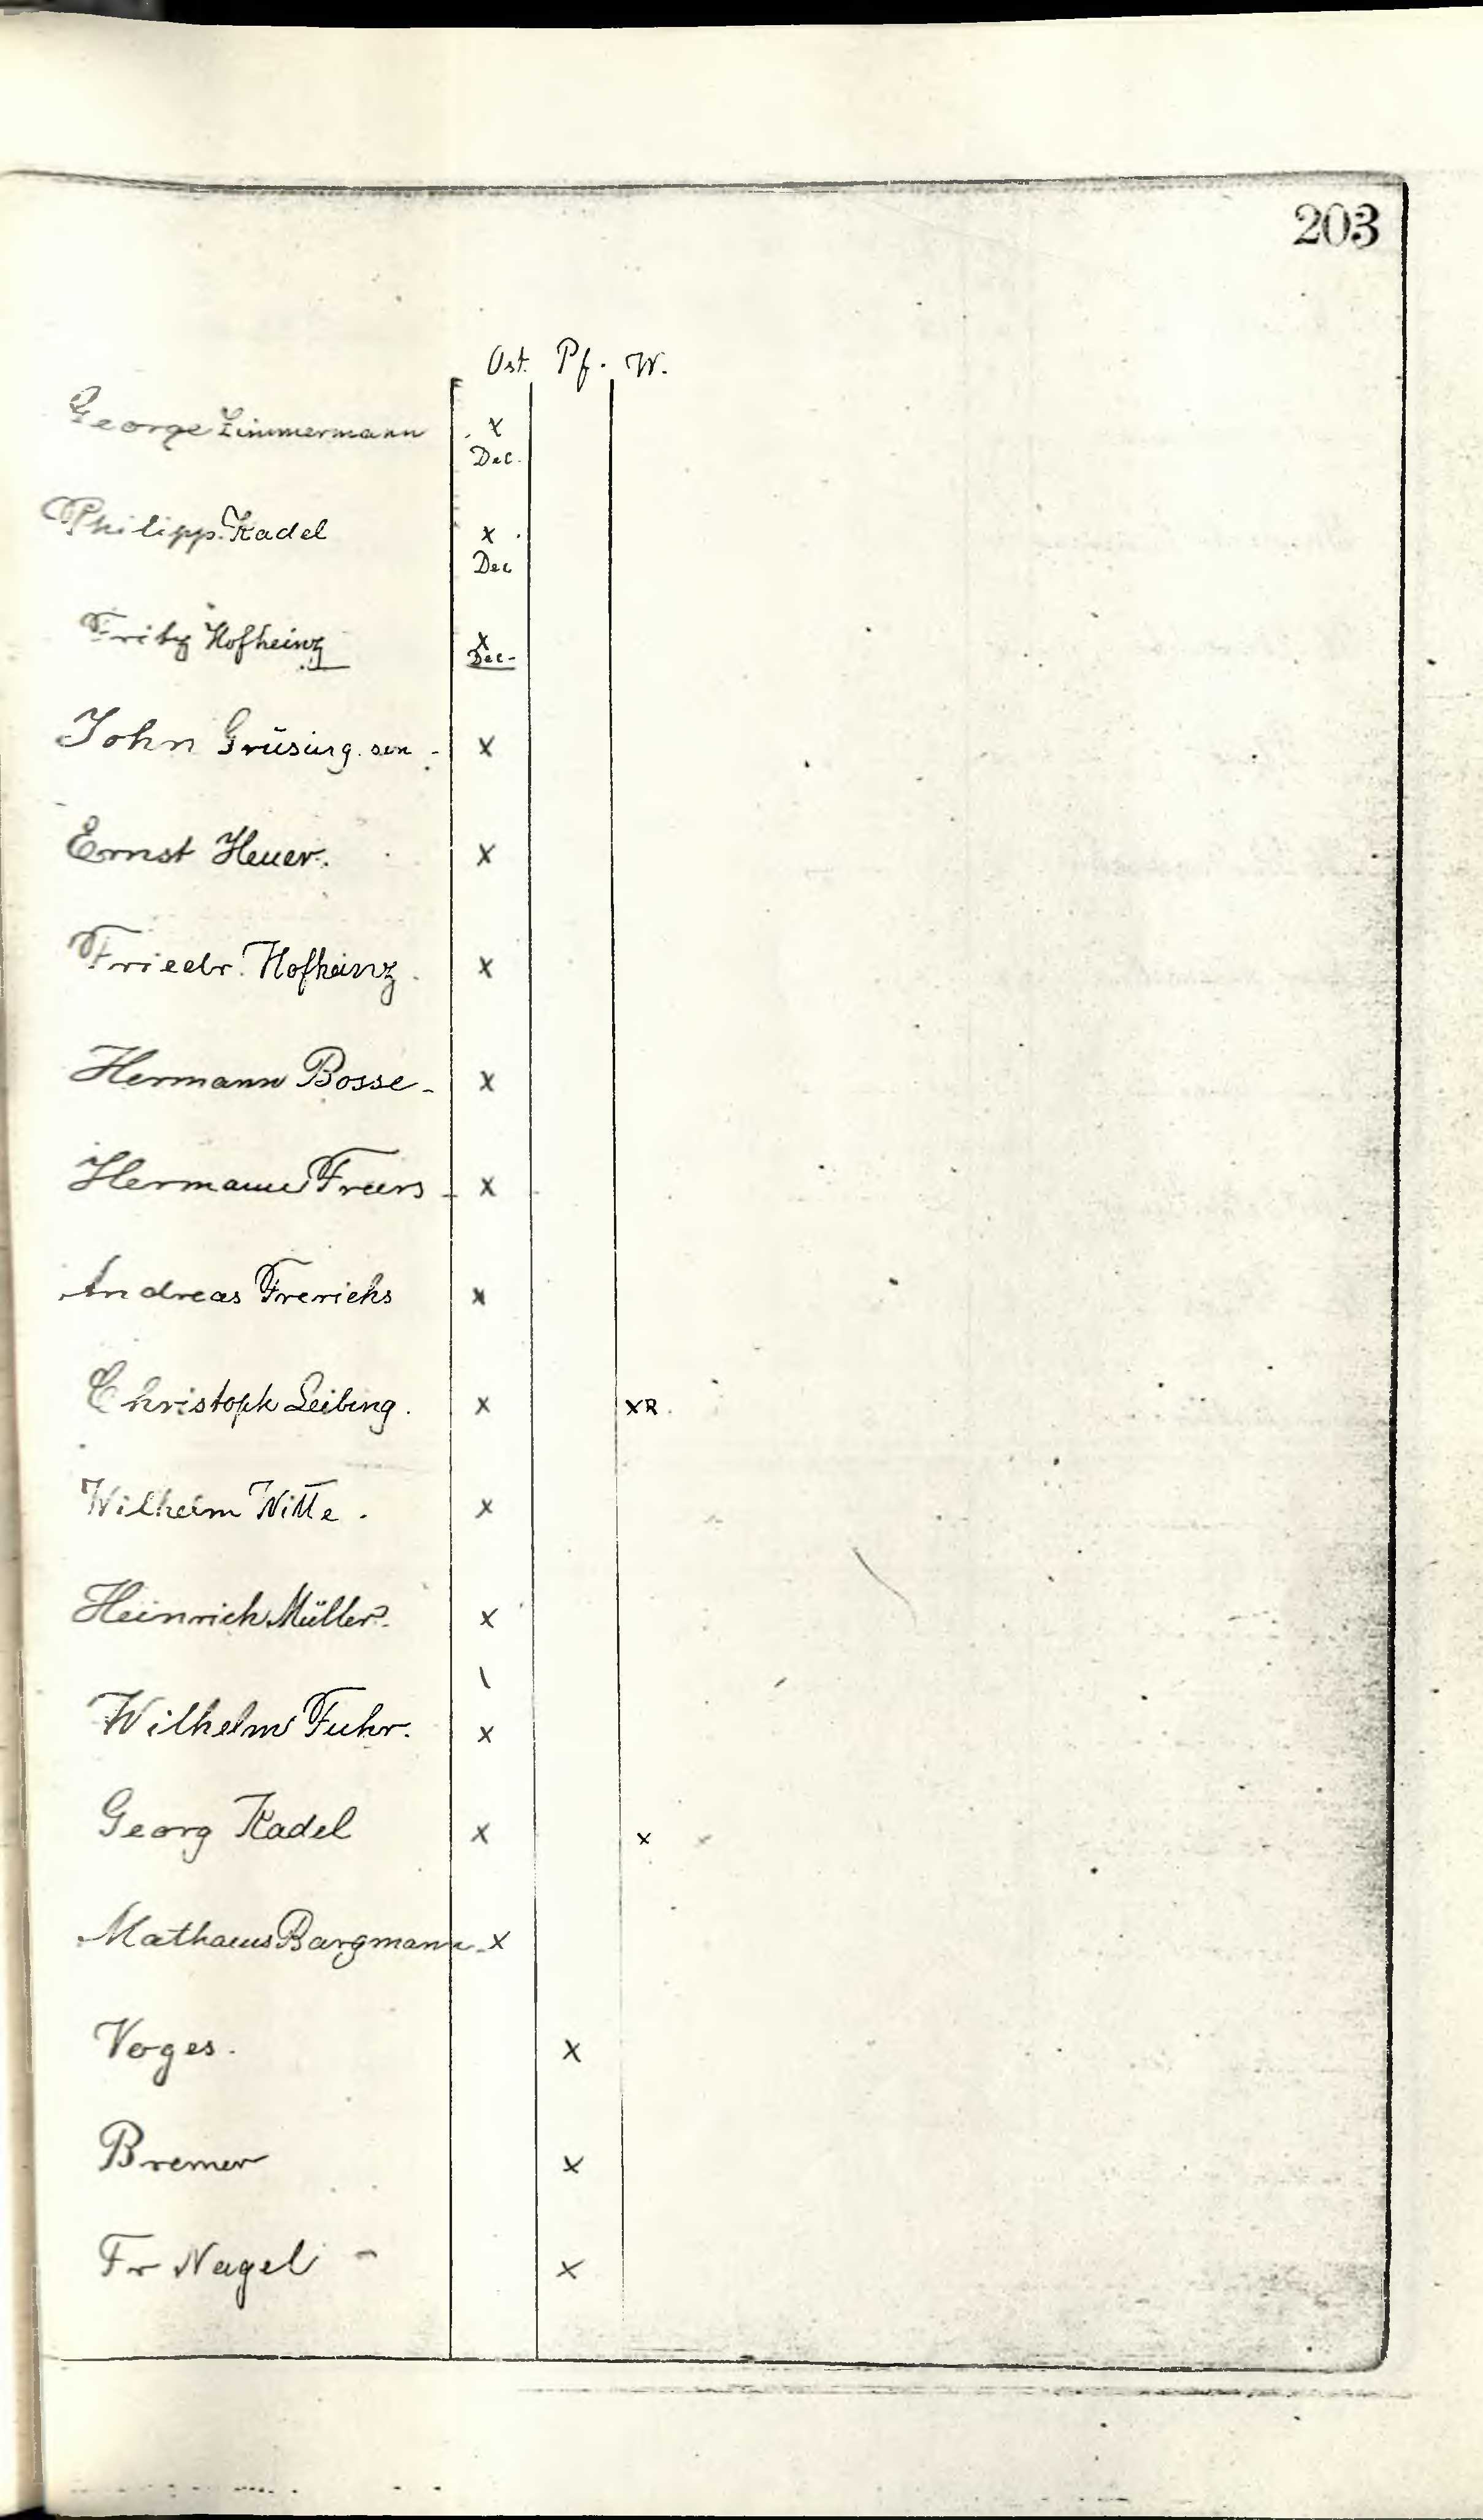 203
Ost. Pf. W.
George Zimmermann x
Dec.
Philipp Kadel x
Dec
Fritz Hofheinz x
Dec-
John Grüsing sen - x
Ernst Heuer. x
Friedr. Hofheinz. x
Hermann Bosse - x
Hermann Freers - x
Andreas Frerichs x
Christoph Leibing. x xR
Wilhelm Witte. x
Heinrich Müller. x
\
Wilhelm Fuhr. x
Georg Kadel x x
Mathaeus Bargmann - x
Voges. x
Bremer x
Fr Nagel - x